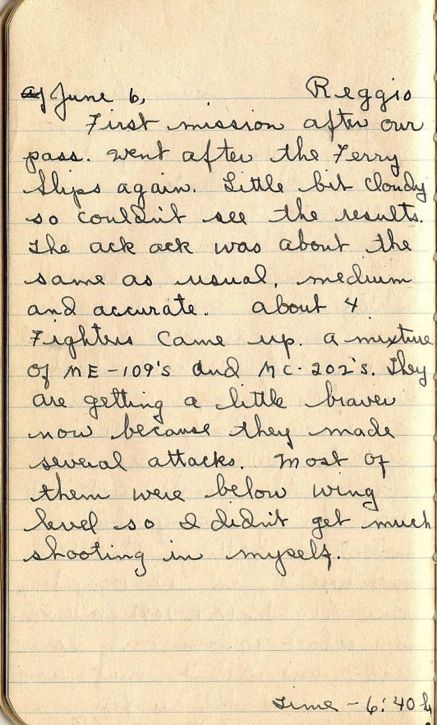 June 6, Reggio
First mission after our
pass. Went after the Ferry
Ships again. Little bit cloudy
so couldn't see the results.
The ack ack was about the
same as usual, medium
and accurate. About 4
Fighters came up. A mixture
of ME-109's and MC-202's. They
are getting a little braver
now because they made
several attacks. Most of
them were below wing
level so I didn't get much
shooting in myself.
Time - 6:40 h